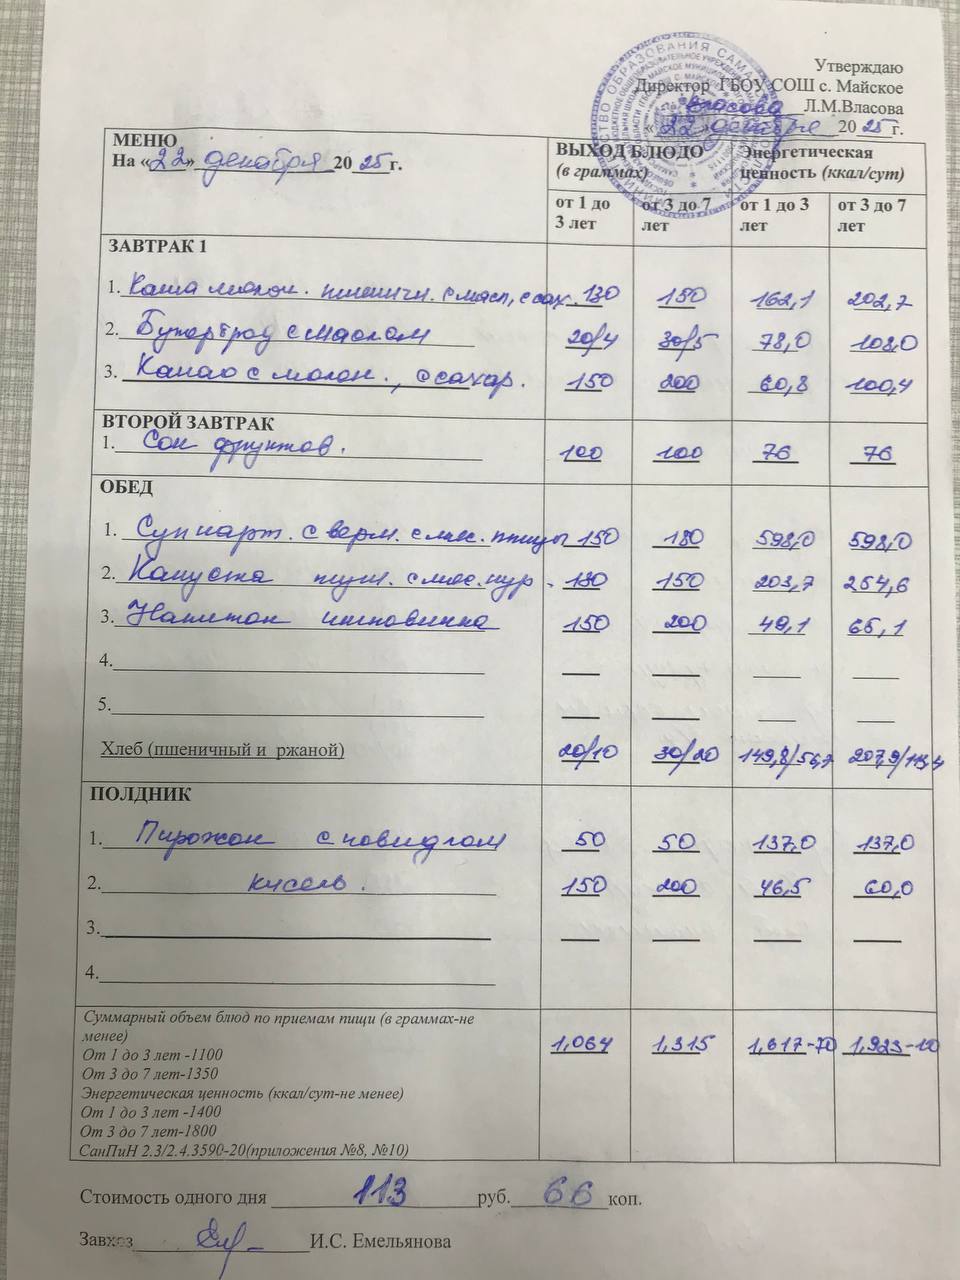 Утверждаю
Директор ГБОУ СОШ с. Майское
Власова Л.М.Власова
«22» декабря 2025 г.
МЕНЮ
На «22» декабря 2025 г.
ВЫХОД БЛЮДО (в граммах)
Энергетическая ценность (ккал/сут)
от 1 до 3 лет
от 3 до 7 лет
от 1 до 3 лет
от 3 до 7 лет
ЗАВТРАК 1
1. Каша молоч. пшеничн. с масл, с сах. 130 150 162,1 202,7
2. Бутерброд с маслом 20/4 30/5 78,0 108,0
3. Какао с молок., с сахар. 150 200 60,8 100,4
ВТОРОЙ ЗАВТРАК
1. Сок фруктов. 100 100 76 76
ОБЕД
1. Суп карт. с верм. с мяс. птицы 150 180 598,0 598,0
2. Капуста туш. с мяс. кур. 130 150 203,7 254,6
3. Напиток 150 200 49,1 65,1
4.
5.
Хлеб (пшеничный и ржаной) 20/10 30/20 149,8/56,7 207,9/113,4
ПОЛДНИК
1. Пирожок с повидлом 50 50 137,0 137,0
2. кисель. 150 200 46,5 60,0
3.
4.
Суммарный объем блюд по приемам пищи (в граммах-не менее) 1,064 1,315 1,617-70 1,923-10
От 1 до 3 лет -1100
От 3 до 7 лет-1350
Энергетическая ценность (ккал/сут-не менее)
От 1 до 3 лет -1400
От 3 до 7 лет-1800
СанПиН 2.3/2.4.3590-20(приложения №8, №10)
Стоимость одного дня 113 руб. 66 коп.
Завхоз И.С. Емельянова